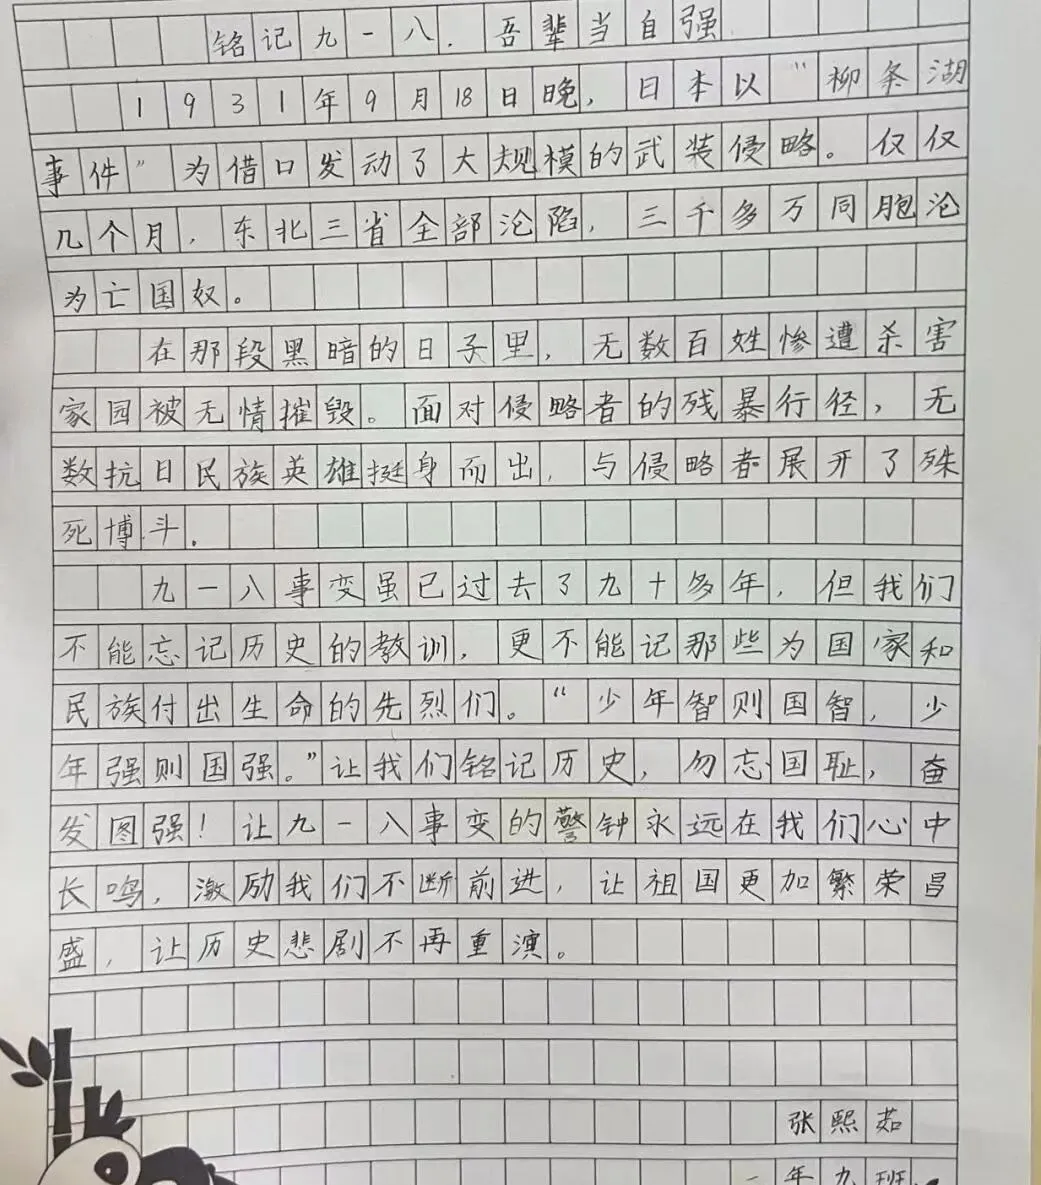 铭记九一八，吾辈当自强
1931年9月18日晚，日本以“柳条湖
事件”为借口发动了大规模的武装侵略。仅仅
几个月，东北三省全部沦陷，三千多万同胞沦
为亡国奴。
在那段黑暗的日子里，无数百姓惨遭杀害
家园被无情摧毁。面对侵略者的残暴行径，无
数抗日民族英雄挺身而出，与侵略者展开了殊
死博斗.
九一八事变虽已过去了九十多年，但我们
不能忘记历史的教训，更不能记那些为国家和
民族付出生命的先烈们。“少年智则国智，少
年强则国强。”让我们铭记历史，勿忘国耻，奋
发图强！让九一八事变的警钟永远在我们心中
长鸣，激励我们不断前进，让祖国更加繁荣昌
盛，让历史悲剧不再重演。
张熙茹
一年九班